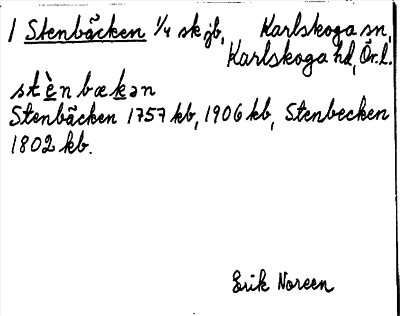 1 Stenbäcken 1/4 sk jb, Karlskoga sn,
Karlskoga hd, Ör. l.
stè̱nbæḵən
Stenbäcken 1757 kb, 1906 kb, Stenbecken
1802 kb.
Erik Noreen